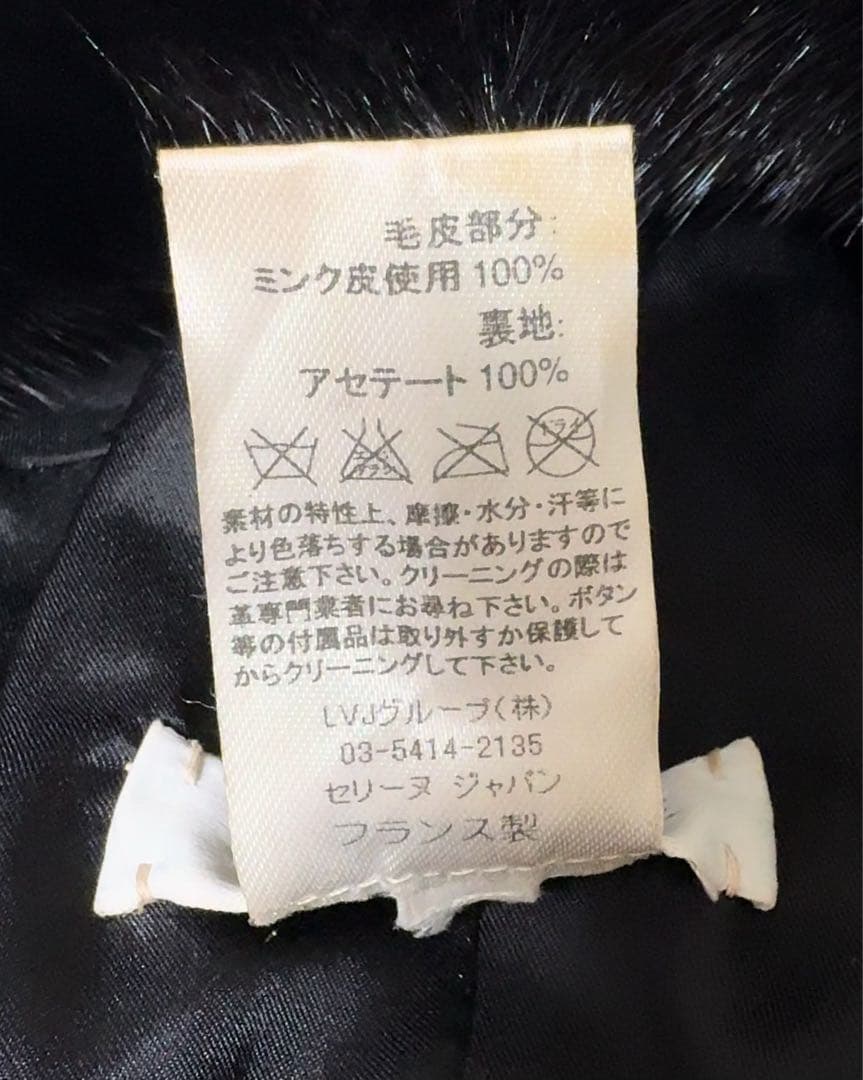 毛皮部分:
ミンク皮使用 100%
裏地:
アセテート 100%
エンソ
サラシ
ドライ
素材の特性上、摩擦・水分・汗等に
より色落ちする場合がありますので
ご注意下さい。クリーニングの際は
革専門業者にお尋ね下さい。ボタン
等の付属品は取り外すか保護して
からクリーニングして下さい。
LVJグループ(株)
03-5414-2135
セリーヌ ジャパン
フランス製